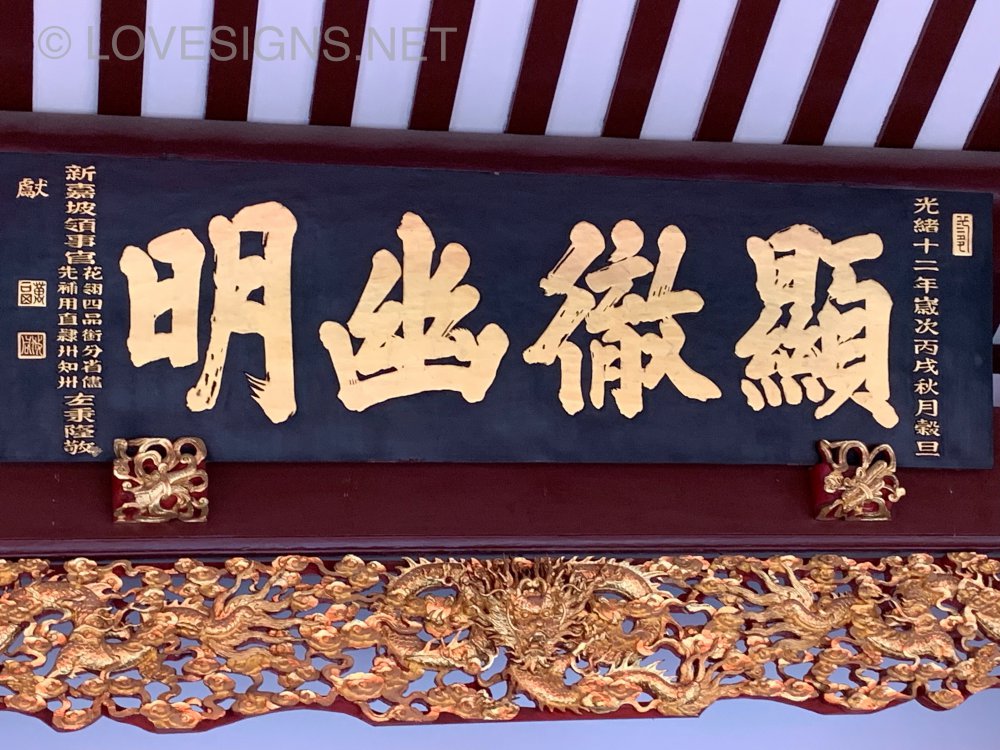 © LOVESIGNS.NET
光緒十二年歲次丙戌秋月穀旦
顯徹幽明
新嘉坡領事官花翎四品銜分省儘先補用直隸州知州左秉隆敬
獻